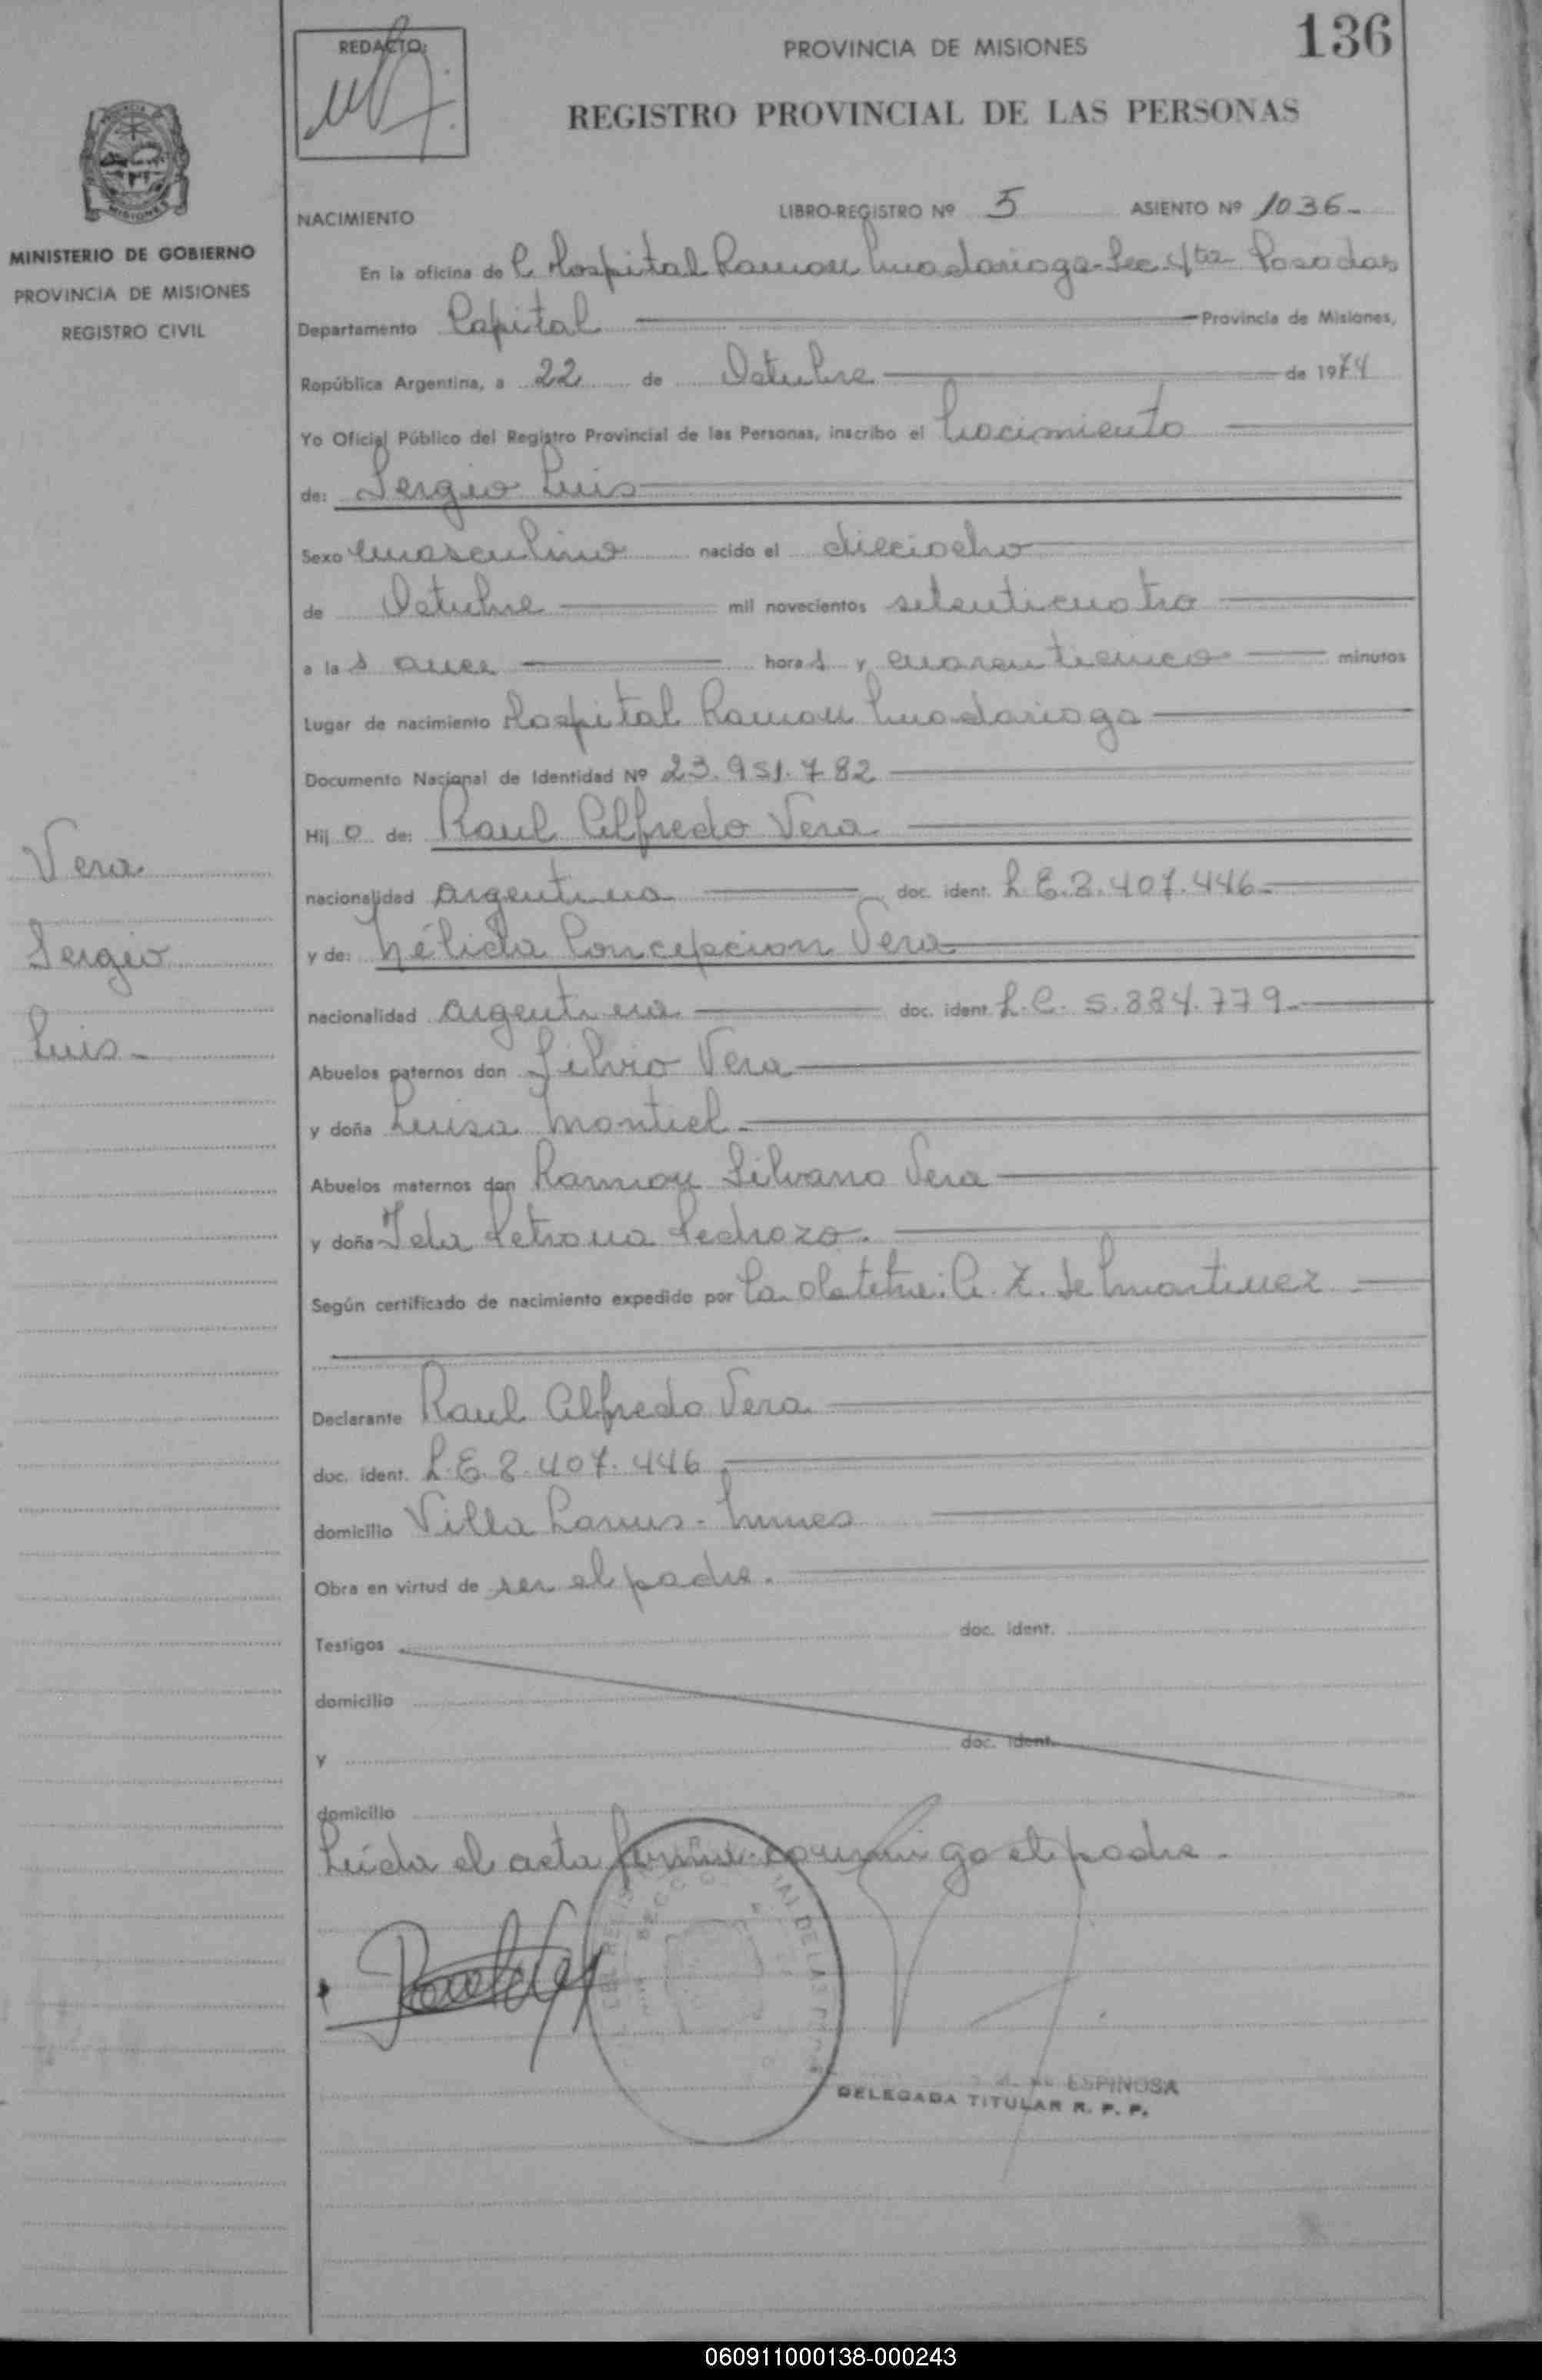 136
REDACTO:
PROVINCIA DE MISIONES
REGISTRO PROVINCIAL DE LAS PERSONAS
MISIONES
MINISTERIO DE GOBIERNO
PROVINCIA DE MISIONES
REGISTRO CIVIL
NACIMIENTO
LIBRO-REGISTRO Nº 5 ASIENTO Nº 1036-
En la oficina de Hospital Ramon Madariaga- Sec. 4ta Posadas
Departamento Capital Provincia de Misiones,
República Argentina, a 22 de Octubre de 1974
Yo Oficial Público del Registro Provincial de las Personas, inscribo el Nacimiento
de: Sergio Luis
Sexo masculino nacido el dieciocho
de Octubre mil novecientos setenticuatro
a las once horas y cuarenticinco minutos
Lugar de nacimiento Hospital Ramon Madariaga
Documento Nacional de Identidad Nº 23.951.782
Hijo de: Raul Alfredo Vera
nacionalidad argentina doc. ident. L.E. 8.407.446-
y de: Nélida Concepcion Vera
nacionalidad argentina doc. ident. L.C. 5.884.779-
Abuelos paternos don Silvio Vera
y doña Luisa Montiel-
Abuelos maternos don Ramon Silvano Vera
y doña Ida Petrona Pedrozo.
Según certificado de nacimiento expedido por La Obstetra: A. Z. de Martinez
Declarante Raul Alfredo Vera
doc. ident. L.E. 8.407.446
domicilio Villa Lanus-
Obra en virtud de ser el padre.
Testigos doc. ident.
domicilio
y doc. ident.
domicilio
Leída el acta firma conmigo el padre.
Vera
Sergio
Luis-
ESPINOSA
DELEGADA TITULAR R. P. P.
060911000138-000243